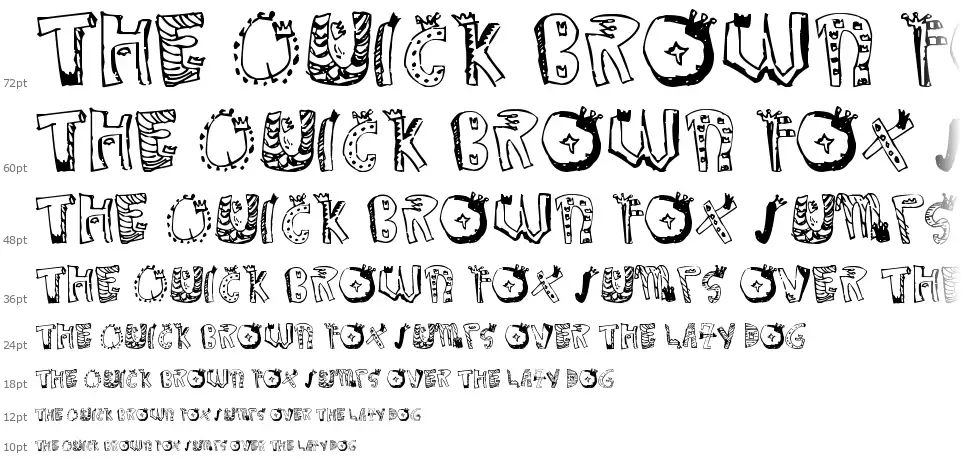 72pt THE QUICK BROWN FO
60pt THE QUICK BROWN FOX J
48pt THE QUICK BROWN FOX JUMPS
36pt THE QUICK BROWN FOX JUMPS OVER THE
24pt THE QUICK BROWN FOX JUMPS OVER THE LAZY DOG
18pt THE QUICK BROWN FOX JUMPS OVER THE LAZY DOG
12pt THE QUICK BROWN FOX JUMPS OVER THE LAZY DOG
10pt THE QUICK BROWN FOX JUMPS OVER THE LAZY DOG